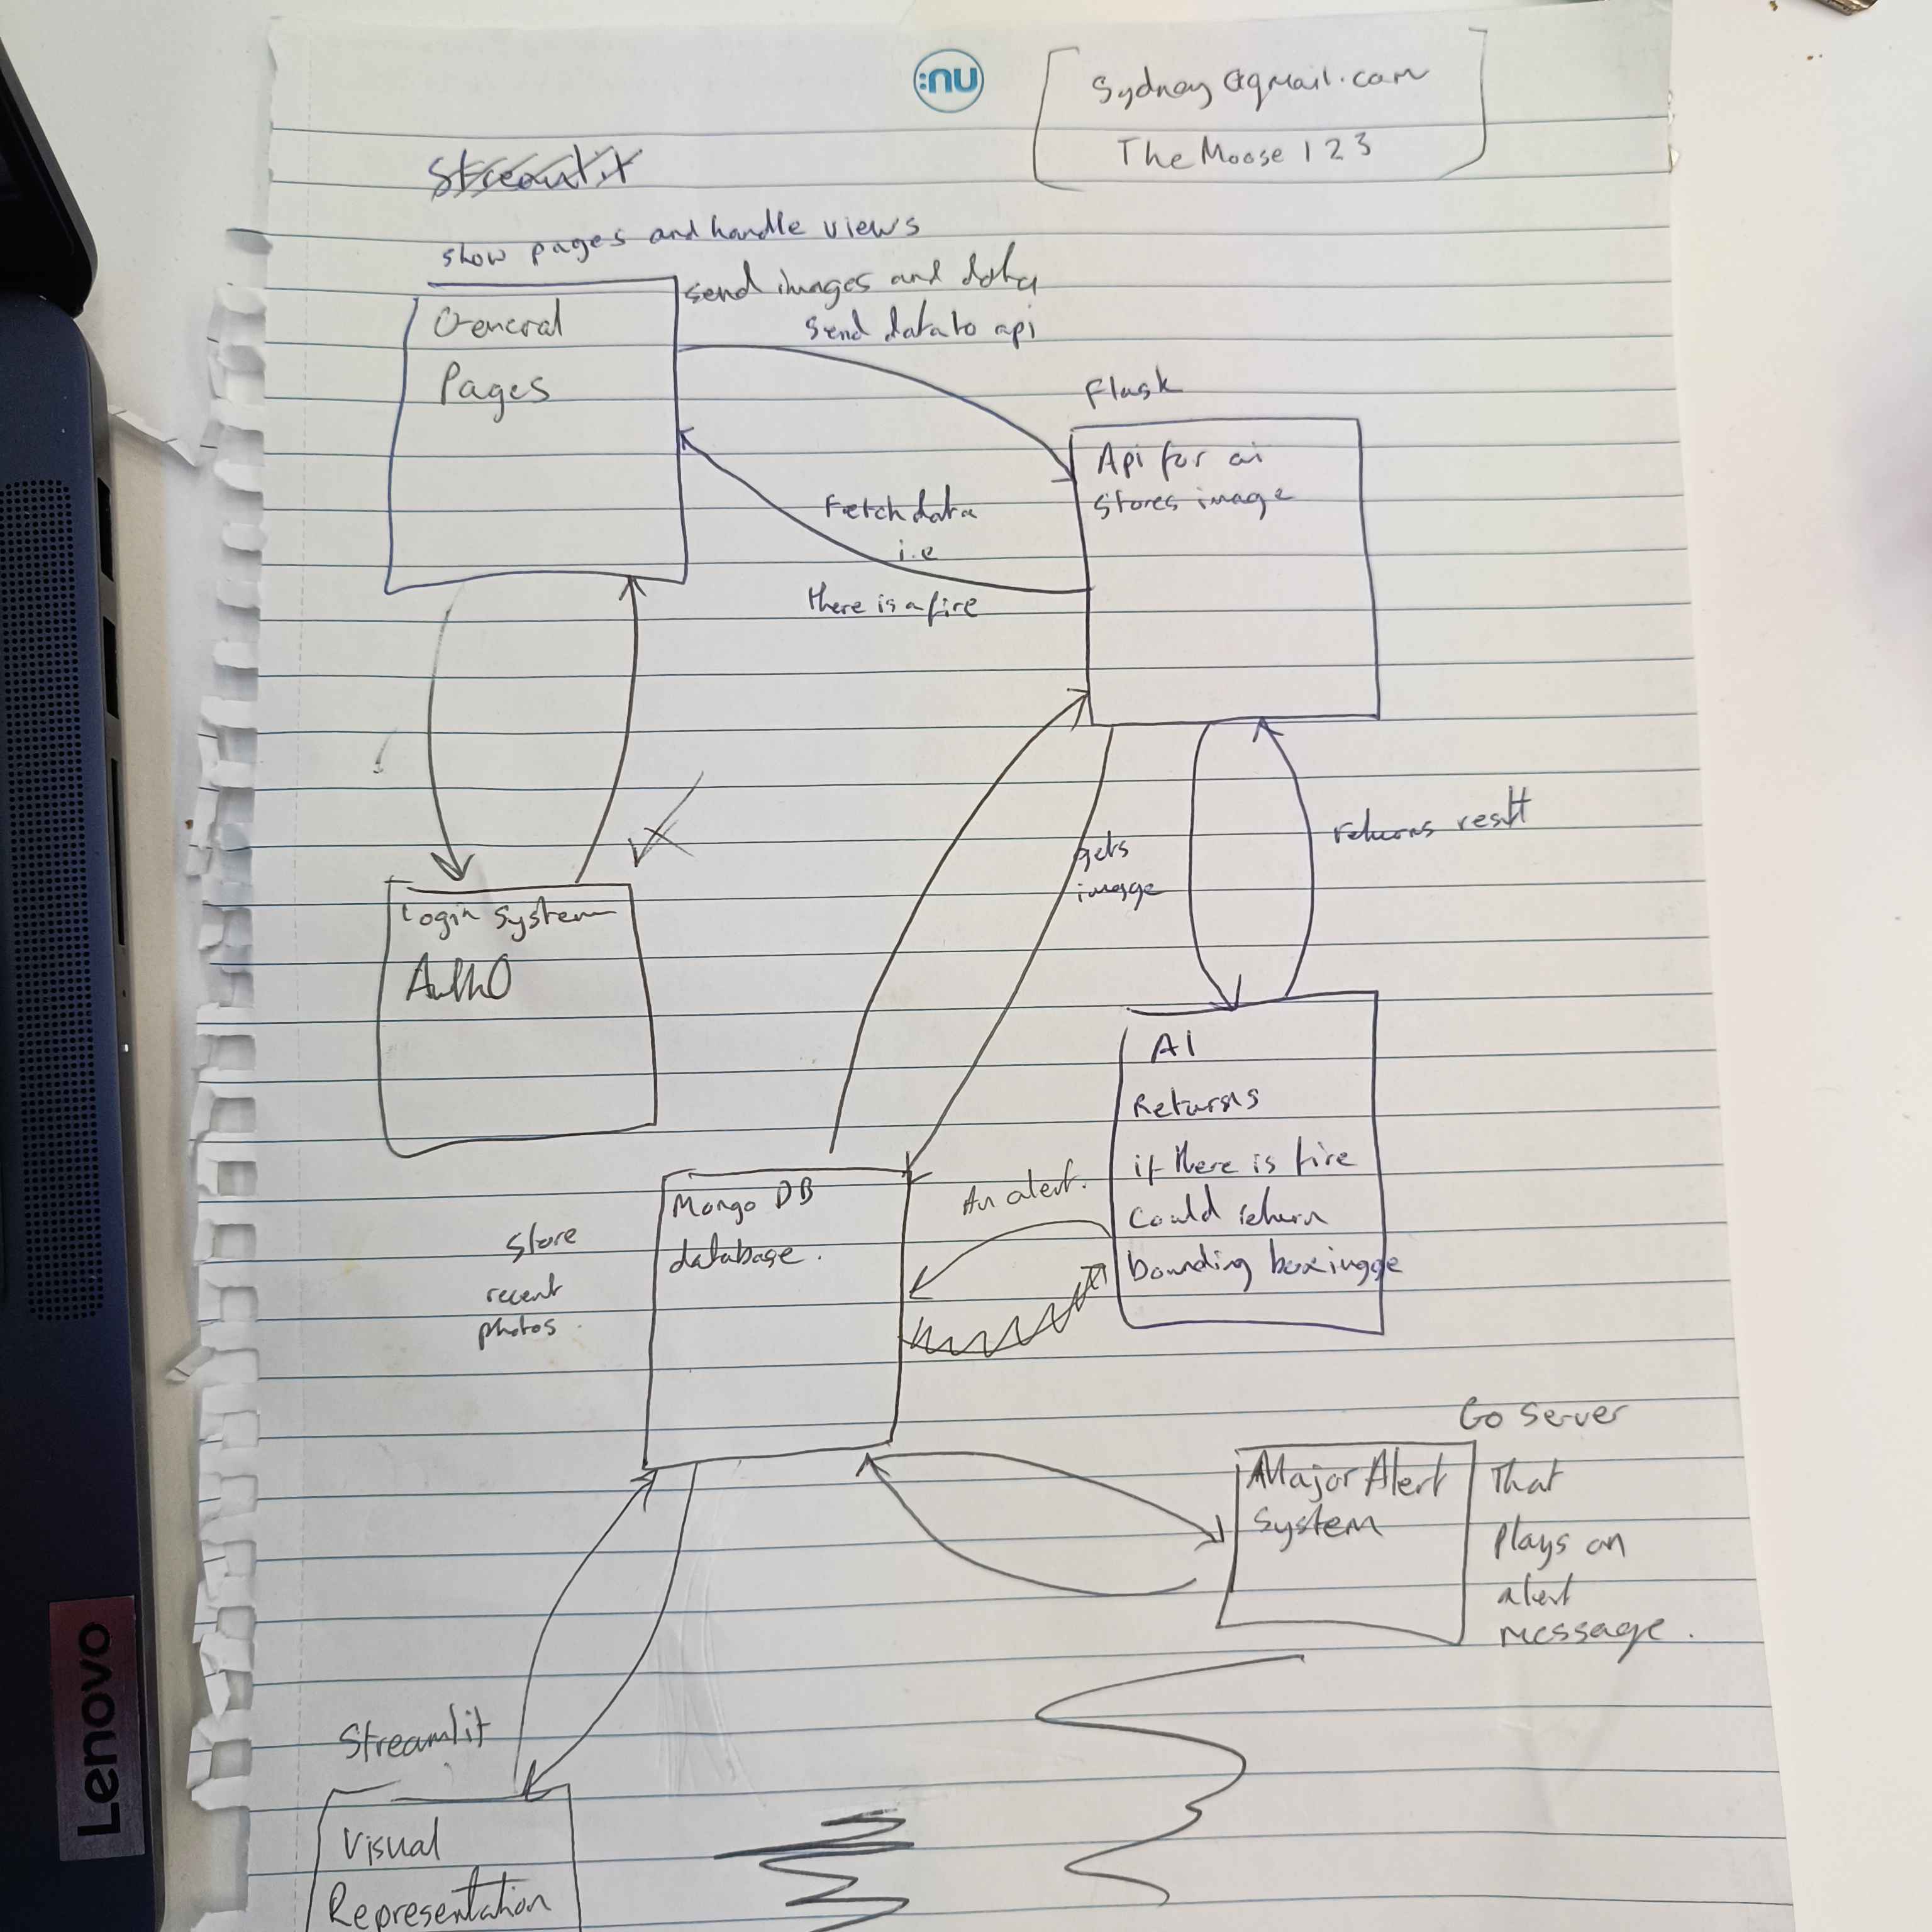 :nu
Sydney@gmail.com
The Moose 123
Streamlit
show pages and handle views
send images and data
Send data to api
General
Pages
Flask
Api for ai
stores image
Fetch data
i.e
there is a fire
gets
image
returns result
Login system
Auth0
AI
Returns
if there is fire
Could return
bounding box
An alert.
Mongo DB
database.
store
recent
photos.
Go Server
Major Alert
System
That
plays an
alert
message.
Streamlit
Visual
Representation
Lenovo